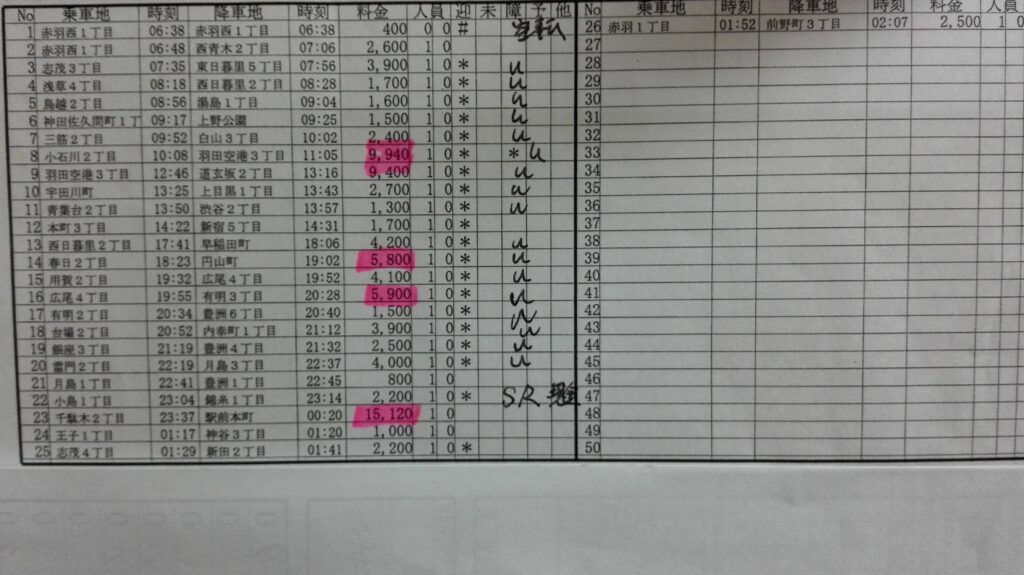 No 乗車地 時刻 降車地 時刻 料金 人員 迎 未 障 予 他
1 赤羽西1丁目 06:38 赤羽西1丁目 06:38 400 0 0 #
2 赤羽西1丁目 06:48 西青木2丁目 07:06 2,600 1 0
3 志茂3丁目 07:35 東日暮里5丁目 07:56 3,900 1 0 * u
4 浅草4丁目 08:18 西日暮里2丁目 08:28 1,700 1 0 * u
5 鳥越2丁目 08:56 湯島1丁目 09:04 1,600 1 0 * u
6 神田佐久間町1丁 09:17 上野公園 09:25 1,500 1 0 * u
7 三筋2丁目 09:52 白山3丁目 10:02 2,400 1 0 * u
8 小石川2丁目 10:08 羽田空港3丁目 11:05 9,940 1 0 * * u
9 羽田空港3丁目 12:46 道玄坂2丁目 13:16 9,400 1 0 * u
10 宇田川町 13:25 上目黒1丁目 13:43 2,700 1 0 * u
11 青葉台2丁目 13:50 渋谷2丁目 13:57 1,300 1 0 * u
12 本町3丁目 14:22 新宿5丁目 14:31 1,700 1 0 *
13 西日暮里2丁目 17:41 早稲田町 18:06 4,200 1 0 * u
14 春日2丁目 18:23 円山町 19:02 5,800 1 0 * u
15 用賀2丁目 19:32 広尾4丁目 19:52 4,100 1 0 * u
16 広尾4丁目 19:55 有明3丁目 20:28 5,900 1 0 * u
17 有明2丁目 20:34 豊洲6丁目 20:40 1,500 1 0 * u
18 台場2丁目 20:52 内幸町1丁目 21:12 3,900 1 0 * u
19 銀座3丁目 21:19 豊洲4丁目 21:32 2,500 1 0 * u
20 雷門2丁目 22:19 月島3丁目 22:37 4,000 1 0 * u
21 月島1丁目 22:41 豊洲1丁目 22:45 800 1 0
22 小島1丁目 23:04 錦糸1丁目 23:14 2,200 1 0 * SR
23 千駄木2丁目 23:37 駅前本町 00:20 15,120 1 0
24 王子1丁目 01:17 神谷3丁目 01:20 1,000 1 0
25 志茂4丁目 01:29 新田2丁目 01:41 2,200 1 0 *
No 乗車地 時刻 降車地 時刻 料金 人員
26 赤羽1丁目 01:52 前野町3丁目 02:07 2,500 1 0
27
28
29
30
31
32
33
34
35
36
37
38
39
40
41
42
43
44
45
46
47
48
49
50